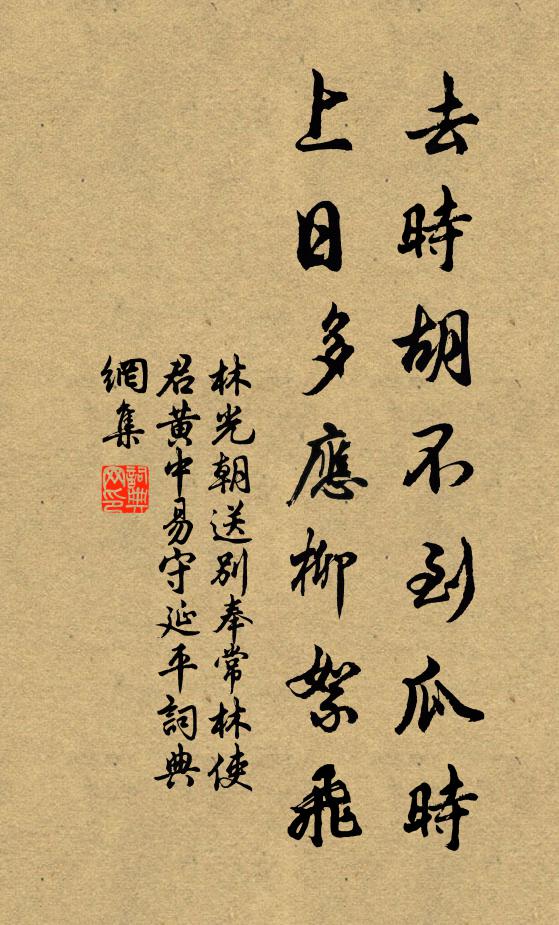 去時胡不到瓜時
上日多應柳絮飛
林光朝送別奉常林使
君黄中易守延平詞典
網集
詞典网印